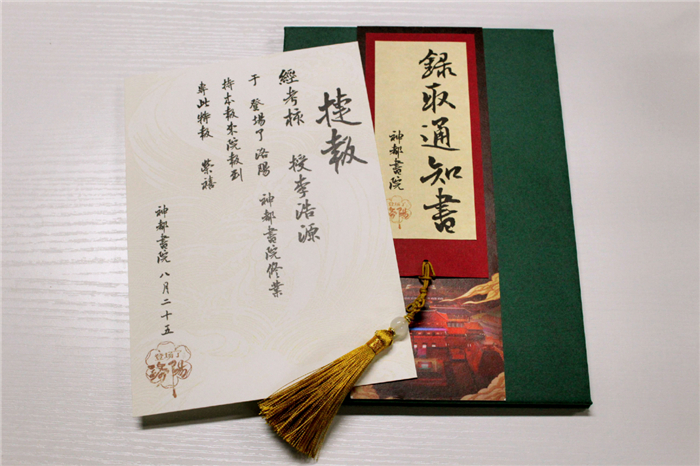 錄取通知書
神都書院
登場了
洛陽
捷報
經考核 授李浩源
于 登場了洛陽 神都書院修業
持本報來院報到
此特報 榮禧
神都書院 八月二十五
登場了
洛陽